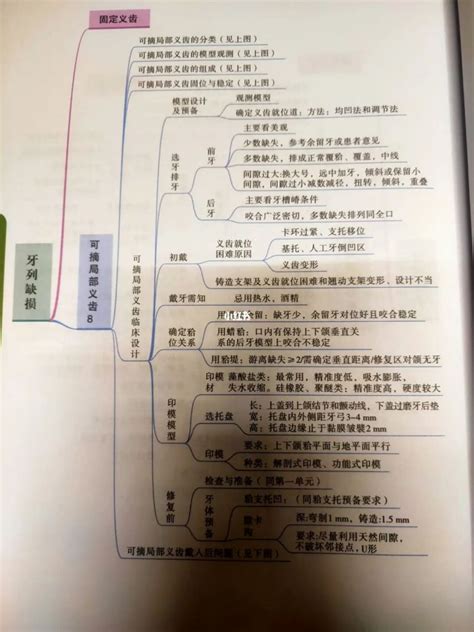 固定义齿
牙列缺损
可摘局部义齿8
可摘局部义齿的分类（见上图）
可摘局部义齿的模型观测（见上图）
可摘局部义齿的组成（见上图）
可摘局部义齿固位与稳定（见上图）
可摘局部义齿临床设计
模型设计及预备
观测模型
确定义齿就位道：方法：均凹法和调节法
选牙排牙
前牙
主要看美观
少数缺失，参考余留牙或患者意见
多数缺失，排成正常覆𬌗、覆盖，中线
间隙过大：换大号，远中加牙，倾斜或保留小
间隙，间隙过小减数减径，扭转，倾斜，重叠
后牙
主要看牙槽嵴条件
咬合广泛密切，多数缺失排列同全口
初戴
义齿就位困难原因
卡环过紧、支托移位
基托、人工牙倒凹区
义齿变形
铸造支架及义齿就位困难和翘动支架变形、设计不当
戴牙需知
忌用热水，酒精
确定𬌗位关系
余留：缺牙少，余留牙对位好且咬合稳定
用蜡𬌗：口内有保持上下颌垂直关
系的后牙模型上咬合不稳定
用𬌗堤：游离缺失≥2/需确定垂直距离/修复区对颌无牙
印模模型
印模材
藻酸盐类：最常用，精准度低，吸水膨胀，
失水收缩。硅橡胶、聚醚类：精准度高，硬度较大
选托盘
长：上盖到上颌结节和颤动线，下盖过磨牙后垫
宽：托盘内外侧距牙弓3~4 mm
高：托盘边缘止于黏膜皱襞2 mm
印模
要求：上下颌𬌗平面与地平面平行
种类：解剖式印模、功能式印模
修复前
检查与准备（同第一单元）
牙体预备
𬌗支托凹：（同𬌗支托预备要求）
隙卡沟
深：弯制1 mm，铸造：1.5 mm
要求：尽量利用天然间隙，
不破坏邻接点，U形
可摘局部义齿戴入后问题（见下图）